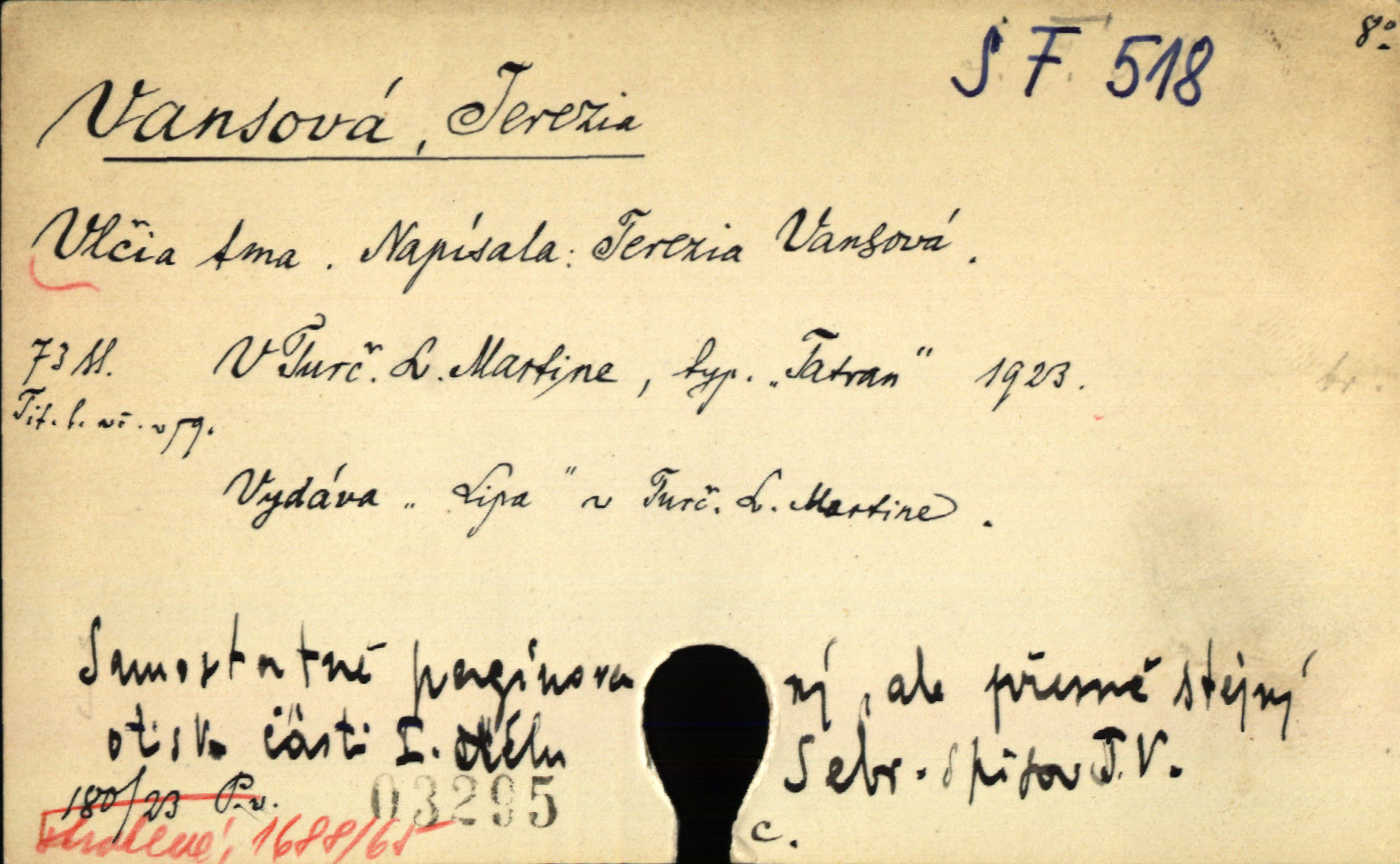 S F 518
8°
Vansová, Terezia
Vlčia tma. Napísala: Terezia Vansová.
73 st. V Turč. S. Martine, typ. „Tatran" 1923.
Tit. l.
Vydáva „Lipa" v Turč. S. Martine.
Samostatně paginovaný, ale přesně stejný
otisk části I. dílu Sebr. spisov T.V.
180/23 P.v. 03295
1688/65
c.